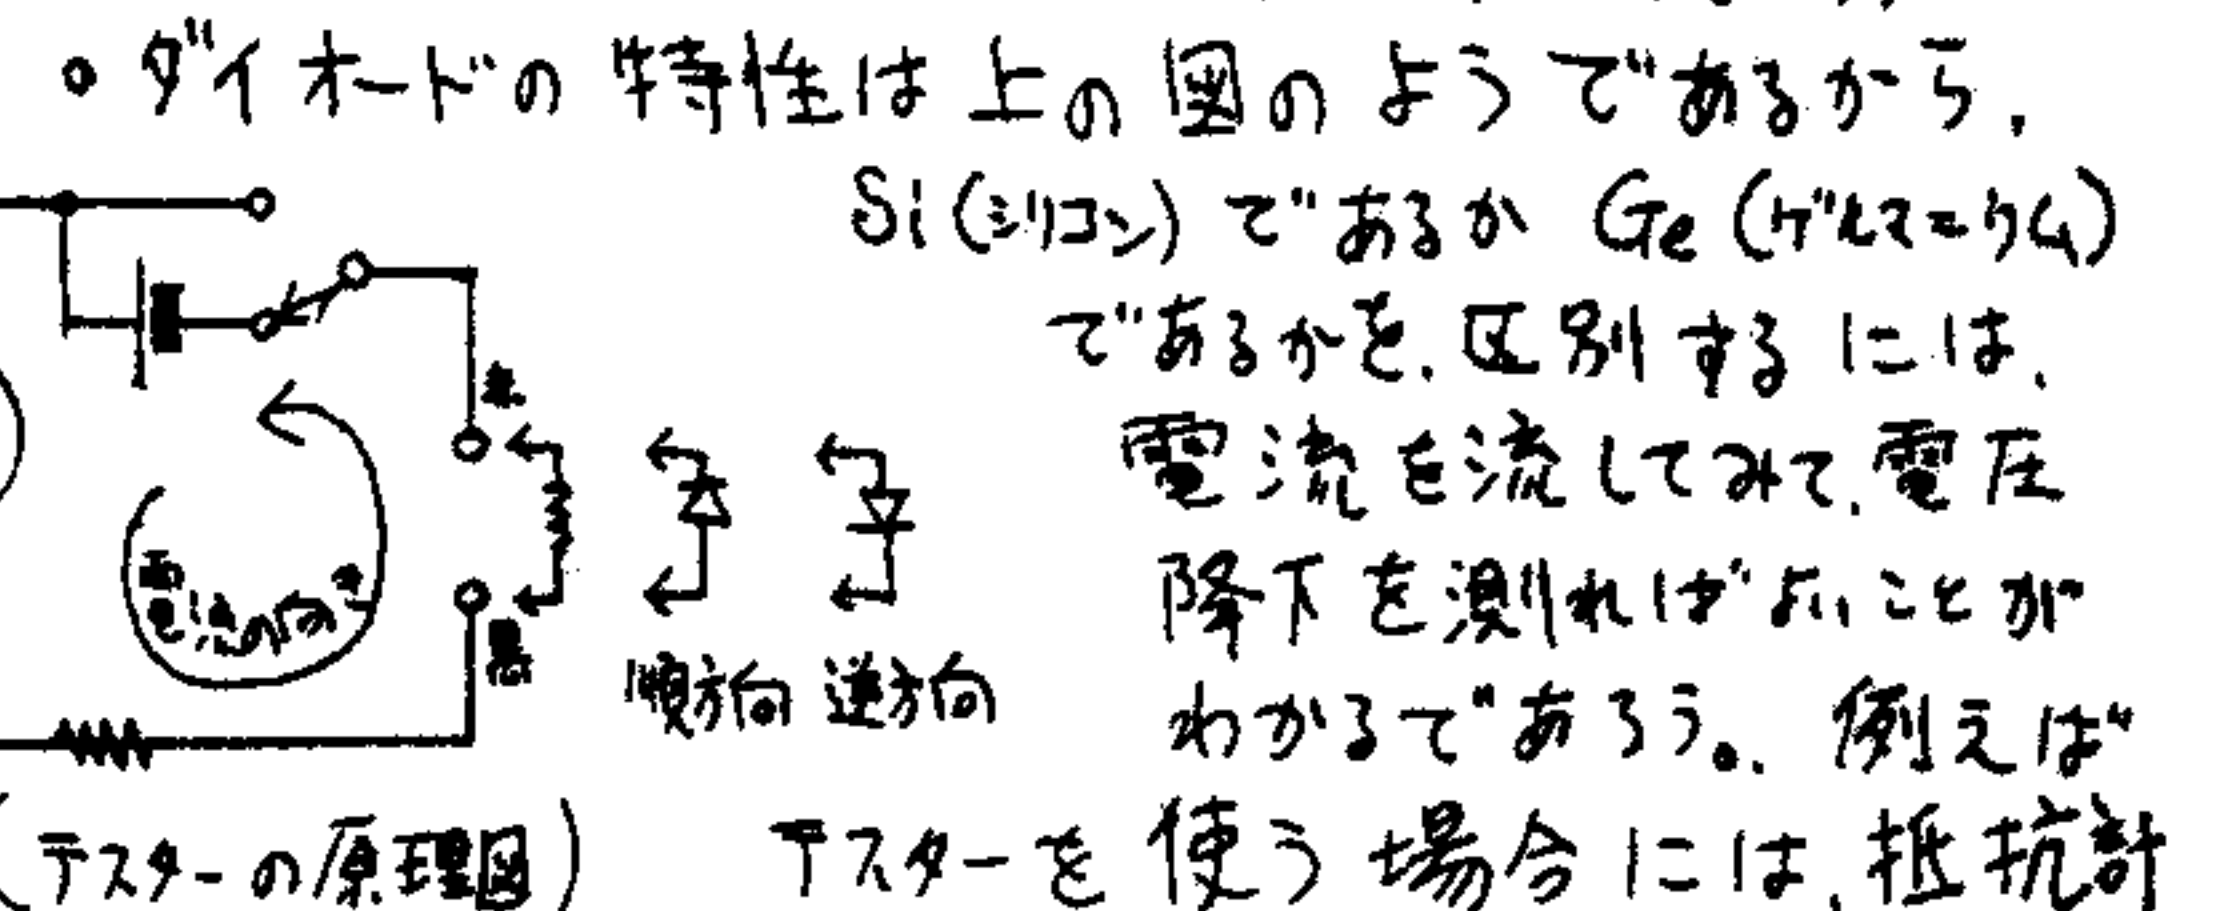 ○ダイオードの特性は上の図のようであるから,
Si(シリコン)であるか Ge(ゲルマニウム)
であるかを,区別するには,
電流を流してみて,電圧
降下を測ればよいことが
わかるであろう。例えば
テスターを使う場合には,抵抗計
赤
黒
電流の向き
順方向 逆方向
(テスターの原理図)